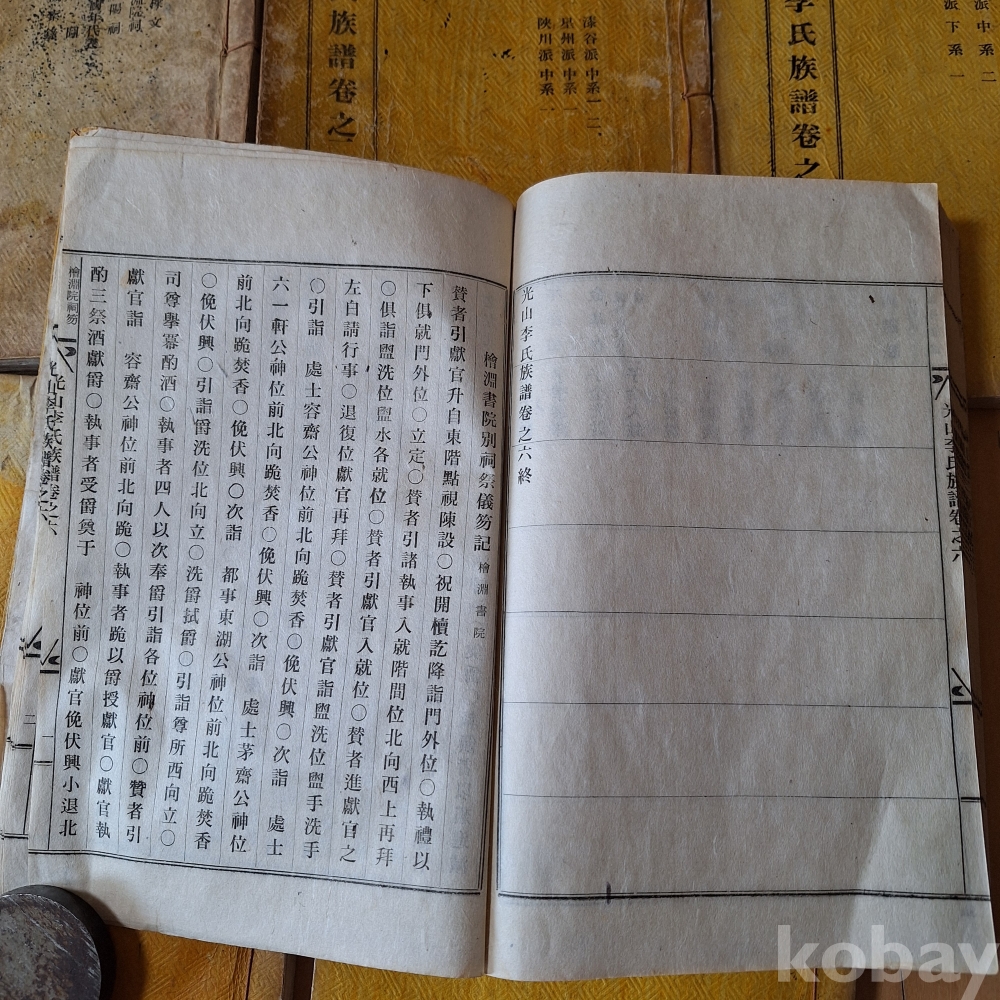 光山李氏族譜卷之六終
光山李氏族譜卷之六
檜淵書院別祠祭儀笏記 檜淵書院
賛者引獻官升自東階點視陳設○祝開櫝訖降詣門外位○執禮以
下俱就門外位○立定○賛者引諸執事入就階間位北向西上再拜
○俱詣盥洗位盥水各就位○賛者引獻官入就位○賛者進獻官之
左白請行事○退復位獻官再拜○賛者引獻官詣盥洗位盥手洗手
○引詣 處士容齋公神位前北向跪焚香○俛伏興○次詣 處士
六一軒公神位前北向跪焚香○俛伏興○次詣 處士茅齋公神位
前北向跪焚香○俛伏興○次詣 都事東湖公神位前北向跪焚香
○俛伏興○引詣爵洗位北向立○洗爵拭爵○引詣尊所西向立○
司尊擧冪酌酒○執事者四人以次奉爵引詣各位神位前○賛者引
獻官詣 容齋公神位前北向跪○執事者跪以爵授獻官○獻官執
酌三祭酒獻爵○執事者受爵奠于 神位前○獻官俛伏興小退北
檜淵院祠笏
光山李氏族譜卷之六
一
二
族譜卷之一
漆谷派中系一二、
星州派中系一
陜川派中系一
李氏族譜卷之
派中系二
派下系一
kobay